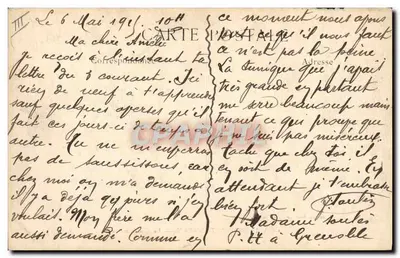 III
Le 6 Mai 191 10H
CARTE POSTALE
Ma chère Amélie
Correspondance
Je reçois à l'instant ta
lettre du 3 courant. Ici
rien de neuf à t'apprendre
sauf quelques averses qu'il
fait ces jours-ci de temps à
autre. Tu ne m'enverras
pas de saucissons, car
chez moi on m'a demandé
il y a déjà qq jours si j'en
voulait. Mon frère me l'a
aussi demandé. Comme en
ce moment nous avons
tout ce qu'il nous faut
ce n'est pas la peine
Adresse
La tunique que j'avait
très grande en partant
me serre beaucoup main
tenant ce qui prouve que
je ne suis pas miséreux.
Tache que chez toi il
en soit de même. En
attendant je t'embrasse
bien fort.
Madame
P.tt à Grenoble